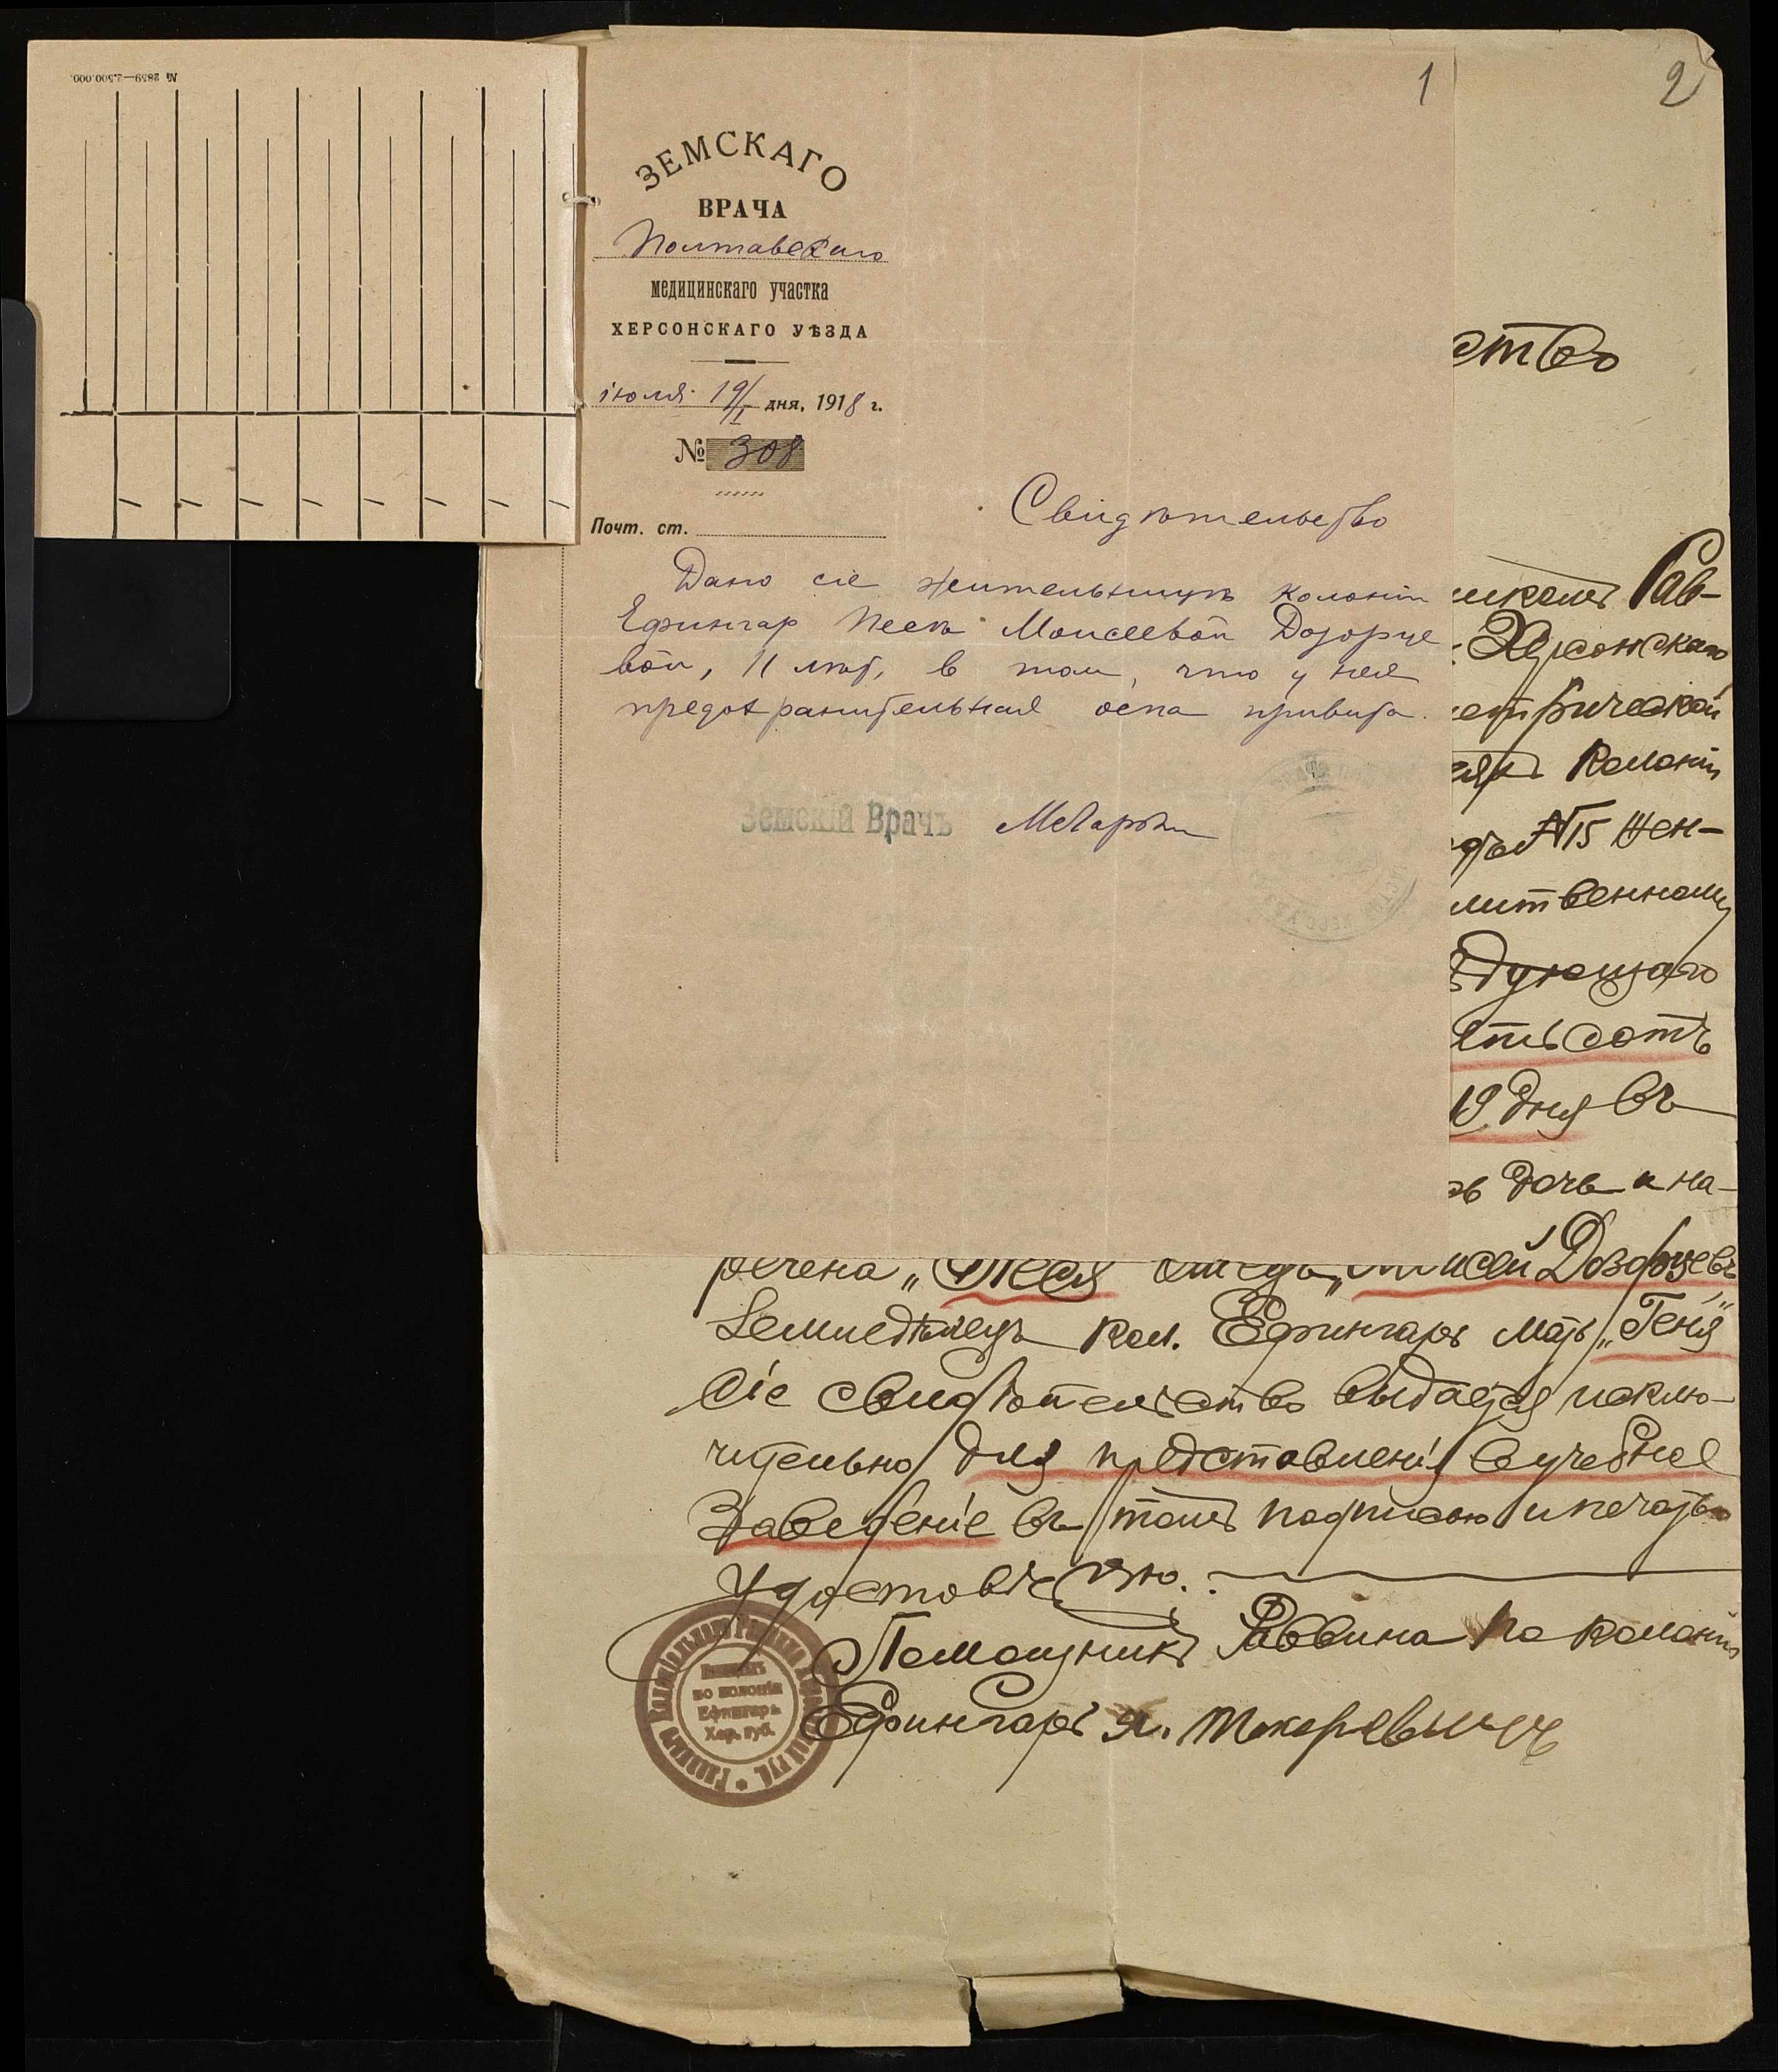 № 2859—2.500.000.
1
2
ЗЕМСКАГО
ВРАЧА
Полтавскаго
медицинскаго участка
ХЕРСОНСКАГО УѢЗДА
іюля 19/I дня, 1918 г.
№ 308
Почт. ст.
Свидѣтельство
Дано сіе жительницѣ колоніи
Ефингар Песѣ Моисеевой Дозорце
вой, 11 лѣт, в том, что у нея
предохранительная оспа привита.
Земскій Врачъ
ство
Рав-
Херсонскаго
етрической
колоніи
№15 жен-
литвенному
дующаго
ятьсотъ
19 дня въ
дочь и на-
речена „Песя" отецъ „Моисей Дозорцевъ"
Земледѣлецъ кол. Ефингаръ мать „Геня"
Сіе свидѣтельство выдается исклю-
чительно для представленія въ учебное
Заведеніе въ томъ подписью и печатью
удостовѣряю.
Помощникъ Раввина по колоніи
Ефингаръ Я. Токоревичъ
по колоніи
Ефингаръ
Хер. губ.